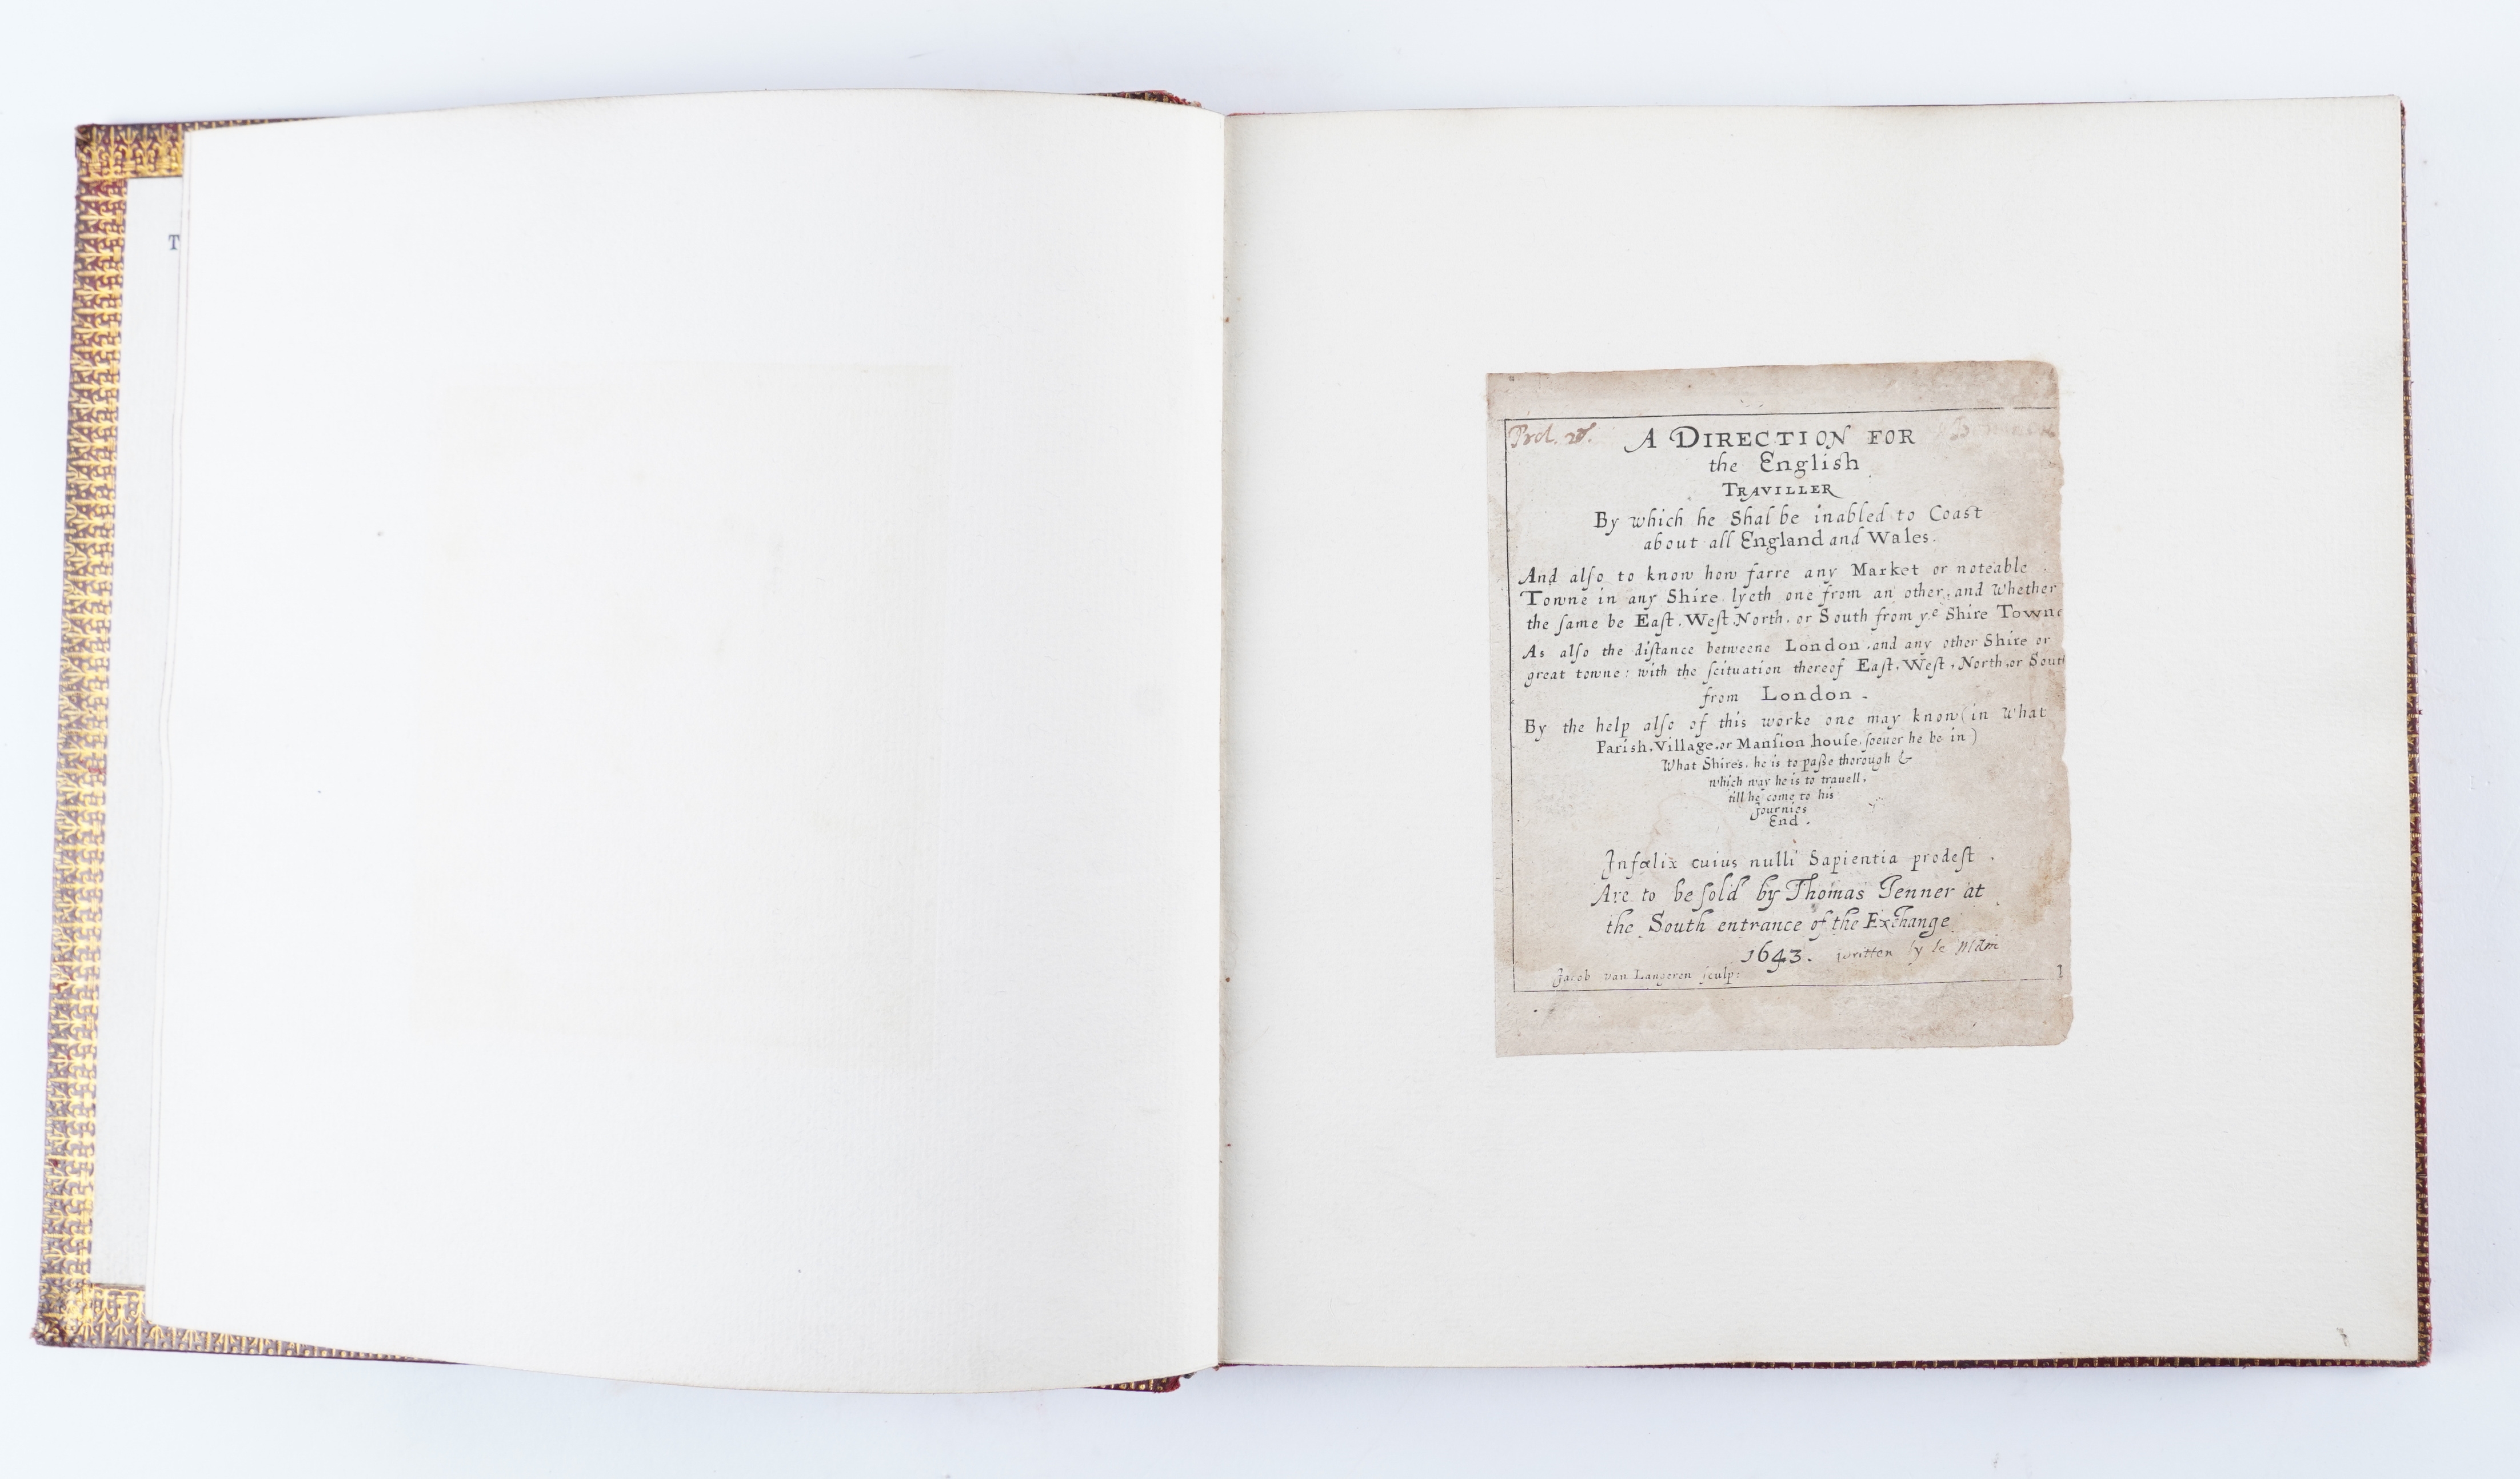 T
A DIRECTION FOR
the English
TRAVILLER
By which he Shal be inabled to Coast
about all England and Wales.
And alſo to know how farre any Market or noteable
Towne in any Shire lyeth one from an other, and Whether
the ſame be Eaſt, Weſt North, or South from yᵉ Shire Towne
As alſo the diſtance betweene London and any other Shire or
great towne: with the ſcituation thereof Eaſt, Weſt, North, or South
from London.
By the help alſo of this worke one may know (in What
Pariſh, Village, or Manſion houſe ſoeuer he be in)
What Shires he is to paſse thorough &
which way he is to trauell,
till he come to his
Journies
End.
Infœlix cuius nulli Sapientia prodeſt.
Are to be ſold by Thomas Jenner at
the South entrance of the Exchange
1643. written by
Jacob van Langeren ſculp:
1